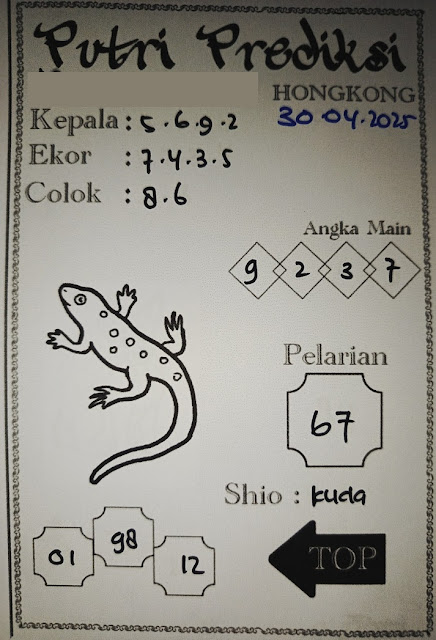 Putri Prediksi
HONGKONG
30 04.2025
Kepala : 5.6.9.2
Ekor : 7.4.3.5
Colok : 8.6
Angka Main
9 2 3 7
Pelarian
67
Shio : kuda
01 98 12
TOP